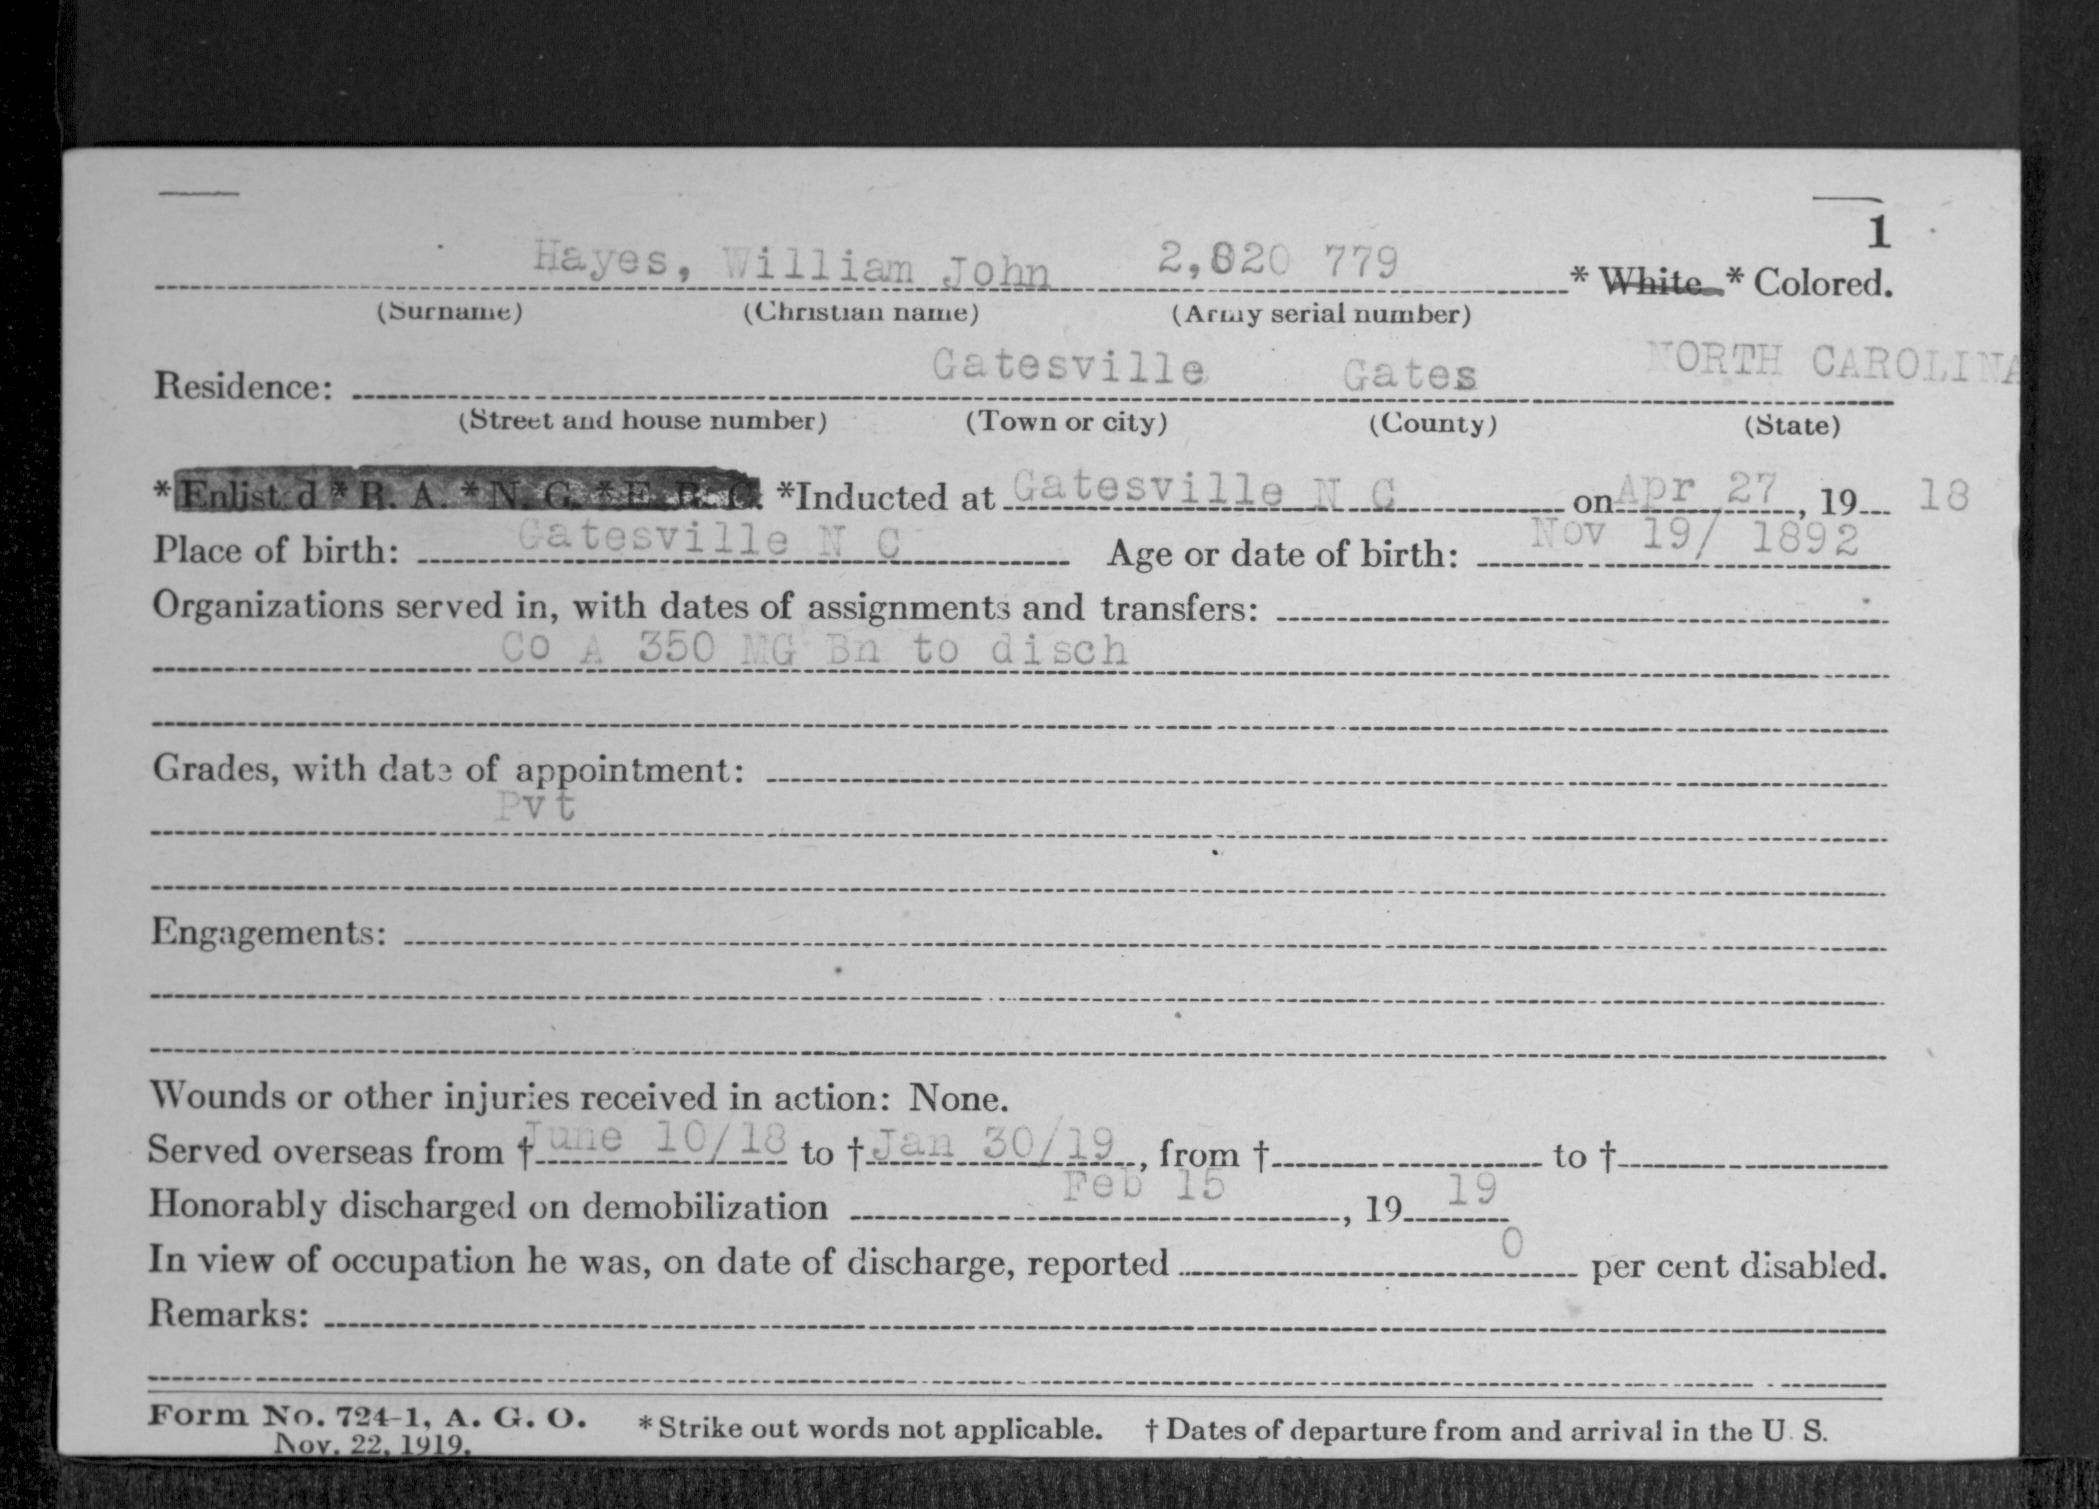 1
Hayes, William John 2,820 779 * White * Colored.
(Surname) (Christian name) (Army serial number)
Residence: Gatesville Gates NORTH CAROLINA
(Street and house number) (Town or city) (County) (State)
*Enlisted *R. A. *N. G. *E. R. C. *Inducted at Gatesville N C on Apr 27, 19 18
Place of birth: Gatesville N C Age or date of birth: Nov 19/ 1892
Organizations served in, with dates of assignments and transfers:
Co A 350 MG Bn to disch
Grades, with date of appointment:
Pvt
Engagements:
Wounds or other injuries received in action: None.
Served overseas from † June 10/18 to † Jan 30/19, from † to †
Honorably discharged on demobilization Feb 15, 19 19
In view of occupation he was, on date of discharge, reported 0 per cent disabled.
Remarks:
Form No. 724-1, A. G. O. *Strike out words not applicable. † Dates of departure from and arrival in the U. S.
Nov. 22, 1919.